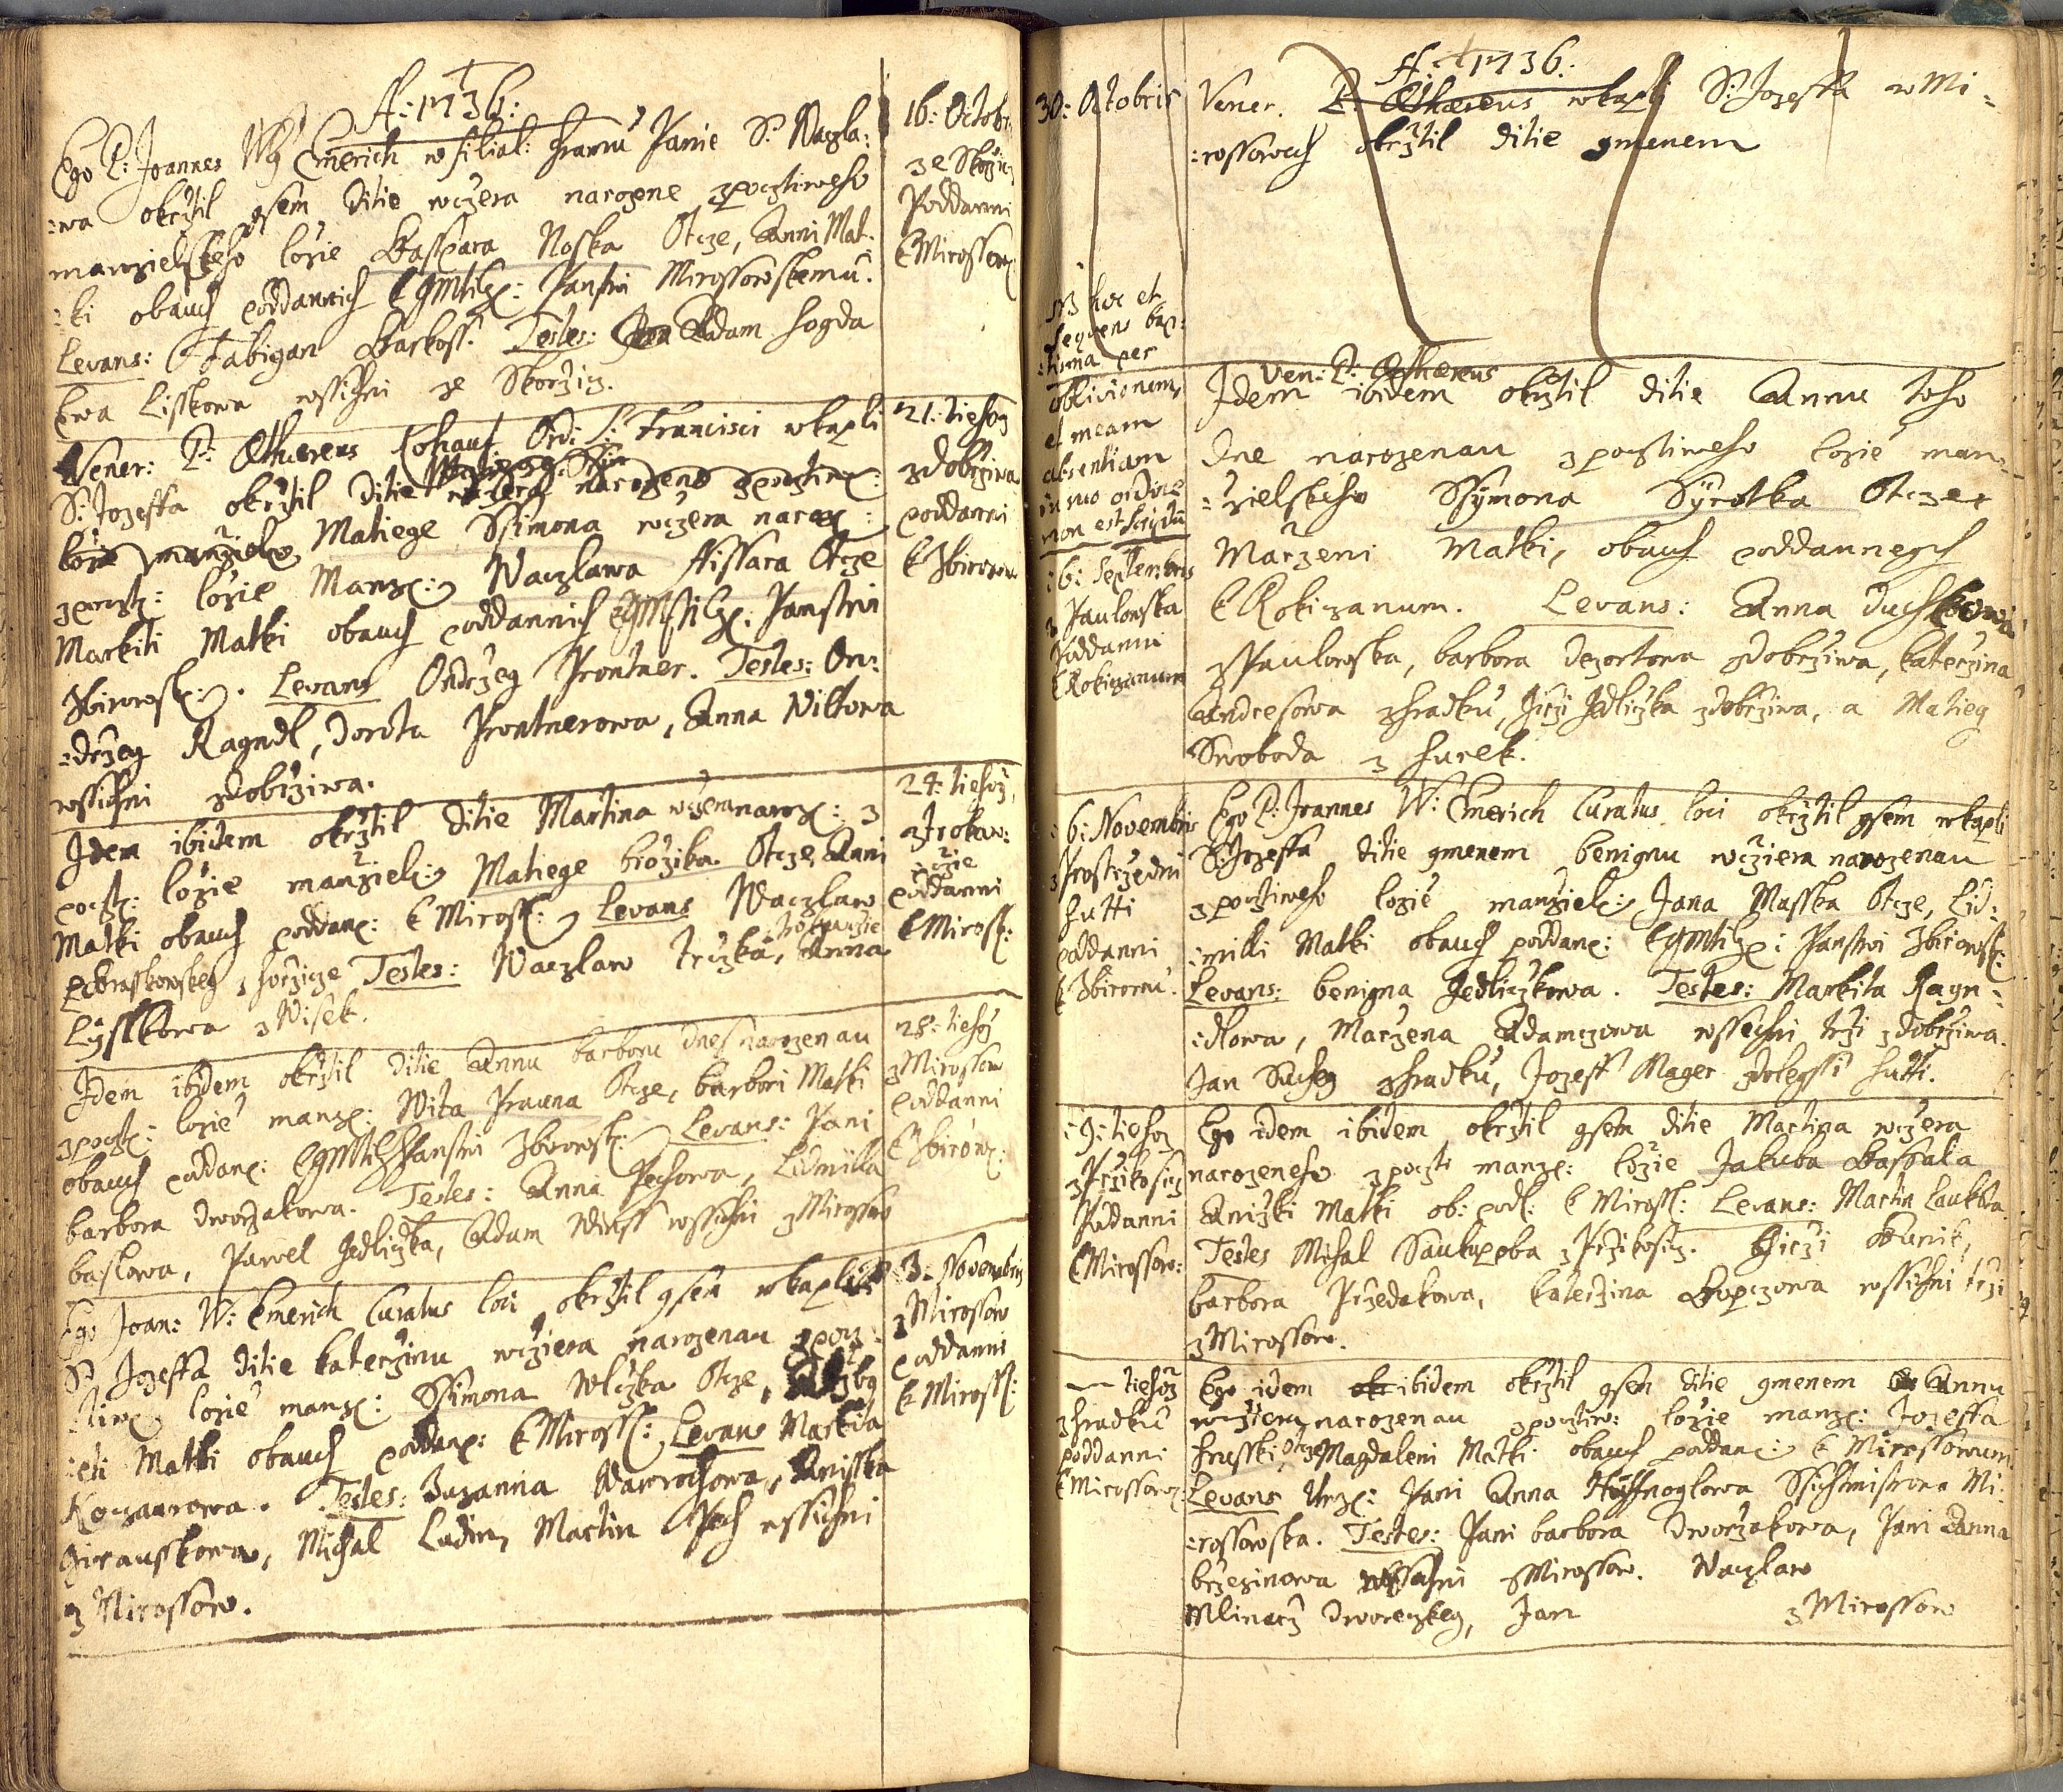 A: 1736:
Ego P: Joannes W: Emerich w filial: Chramu Panie S: Waczla:
:wa okrztil gsem ditie wczera narozene zpocztiweho
manzielskeho loze Kasspara Noska Otcze, Anni Mat:
:ki obauch poddannich k Panstwi Mirossowskemu.
Levans: Fabigan Testes: Adam hogda
Ewa Lisskowa wssichni ze Skorzicz.
16: Octobr:
ze Skorzicz
Poddanni
k Mirossow:
Vener: P: Æthereus Ord: S: Francisci wkapli
S: Jozeffa okrztil ditie wczera narozene zpocztiw:
loze manziels: Matiege Ssimona wczera naroz:
zpoczt: lozie Manz: Waczlawa Fissara Otcze
Markiti Matki obauch poddannich Panstwi
Zbirowsk: Levans Ondrzeg Prontner. Testes: On:
:drzeg Ragndl, Dorota Prontnerowa, Anna Niklowa
wssichni zdobrziwa.
21: tiehoz
zdobrziwa
poddanni
k Zbirowu
Idem ibidem okrztil ditie Martina wczera naroz: z
poczt: lozie manziels: Matiege brozika Otcze, Anni
Matki obauch poddan: k Miross: Levans Waczlaw
zhorzicze Testes: Waczlaw Trczka, Anna
Lisskowa z Wisek.
24: tiehoz
poddanni
k Miross:
Idem ibidem okrztil ditie Annu barboru dnes narozenau
zpoczt: lozie manz: Wita Prauna Otcze, barbori Matki
obauch poddan: Panstwi Zbirowsk: Levans: Pani
barbora dworzakowa. Testes: Anna Pechowa, Lidmilla
baslowa, Pawel Jedliczka, Adam wssichni z Mirossow
28: tiehoz
z Mirossow
poddanni
k Zbirow:
Ego Joan: W: Emerich Curatus loci okrztil gsem wkapli
S: Jozeffa ditie katerzinu wcziera narozenau zpocz:
:tiw: lozie manz: Ssimona Wlczka Otcze,
Matki obauch poddan: k Miross: Levans Markita
Koczaurowa. Testes: Zuzanna Wawrochowa, Anisska
Girausskowa, Michal Ludin, Martin Pech wssichni
z Mirossow.
3. Novembris
z Mirossow
poddanni
k Miross:
A: 1736:
30: Octobris
Vener. P. Æthereus wkapli S: Jozeffa w Mi:
:rossowech okrztil ditie gmenem
NB hoc et
sequens bap:
:tisma per
oblivionem,
et meam
absentiam
suo ordine
non est scriptu
Ven: P: Æthereus
Idem ibidem okrztil ditie Annu toho
dne narozenau zpocztiweho lozie man:
:zielskeho Ssymona Syrotka Otcze
Marzeni Matki, obauch poddannegch
k Rokiczanum. Levans: Anna Duchkowa
zPaulowska, barbora Dezortowa zdobrziwa, katerzina
Andresowa zhradku, Jirzi Jedliczka zdobrziwa, a Matieg
Swoboda z hurek.
:6: Septembris
z Paulowska
Poddanni
k Rokiczanum
Ego P: Joannes W: Emerich Curatus loci okrztil gsem wkapli
S: Jozeffa ditie gmenem benignu wcziera narozenau
zpocztiweho lozie manziels: Jana Masska Otcze, Lid:
:milli Matki obauch poddan: Panstwi Zbirowsk:
Levans: benigna Jedliczkowa. Testes: Markita Ragn:
:dlowa, Marzena Adamczowa wssechni trzi zdobrziwa.
Jan Sucheg zhradku, Jozeff Mager zdolegssi hutti.
:6: Novembris
z Prostrzedni
hutti
poddanni
k Zbirowu.
Ego idem ibidem okrztil gsem ditie Martina wczera
narozeneho zpoczti manz: lozie Jakuba Kasspala
Aniczki Matki ob: pod: k Miross: Levans: Martin Laukota.
Testes Michal Saukupoba z Przikosicz. Girzi Kunik,
barbora Przedakowa, katerzina wssichni trzi
z Mirossow.
:9: tiehoz
z Przikosicz
Poddanni
k Mirossow:
Ego idem ibidem okrztil gsem ditie gmenem Annu
wcziera narozenau zpocztiw: lozie manz: Jozeffa
hrusski Otcze, Magdaleni Matki obauch poddan: k Mirossowum
Levans Urz: Pani Anna Ssichtmistrowa Mi:
:rossowska. Testes: Pani barbora Dworzakowa, Pani Anna
brzezinowa wssichni z Mirossow. Waczlaw
Mlinarz dworeczkeg, Jan z Mirossow
tiehoz
zhradku
poddanni
k Mirossow: